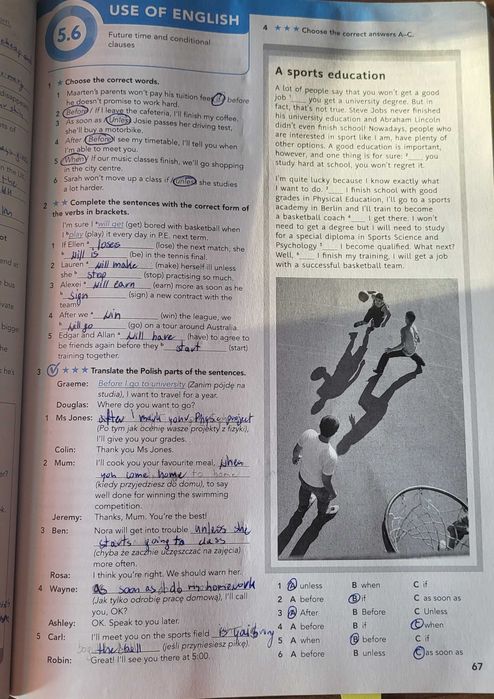 5.6
USE OF ENGLISH
Future time and conditional
clauses
1 ★ Choose the correct words.
1 Maarten's parents won't pay his tuition fees if / before
he doesn't promise to work hard.
2 Before / If I leave the cafeteria, I'll finish my coffee.
3 As soon as / Unless Josie passes her driving test,
she'll buy a motorbike.
4 After / Before I see my timetable, I'll tell you when
I'm able to meet you.
5 When / If our music classes finish, we'll go shopping
in the city centre.
6 Sarah won't move up a class if / unless she studies
a lot harder.
2 ★★ Complete the sentences with the correct form of
the verbs in brackets.
I'm sure I ᵃwill get (get) bored with basketball when
I ᵇplay (play) it every day in P.E. next term.
1 If Ellen ᵃ loses (lose) the next match, she
ᵇ will is (be) in the tennis final.
2 Lauren ᵃ will make (make) herself ill unless
she ᵇ stop (stop) practising so much.
3 Alexei ᵃ will earn (earn) more as soon as he
ᵇ sign (sign) a new contract with the
team.
4 After we ᵃ win (win) the league, we
ᵇ will go (go) on a tour around Australia.
5 Edgar and Allan ᵃ will have (have) to agree to
be friends again before they ᵇ start (start)
training together.
3 ★★★ Translate the Polish parts of the sentences.
Graeme: Before I go to university (Zanim pójdę na
studia), I want to travel for a year.
Douglas: Where do you want to go?
1 Ms Jones: after I mark your Physic project
(Po tym jak ocenię wasze projekty z fizyki),
I'll give you your grades.
Colin: Thank you Ms Jones.
2 Mum: I'll cook you your favourite meal, when
you come home
(kiedy przyjedziesz do domu), to say
well done for winning the swimming
competition.
Jeremy: Thanks, Mum. You're the best!
3 Ben: Nora will get into trouble unless she
starts going to class
(chyba że zacznie uczęszczać na zajęcia)
more often.
Rosa: I think you're right. We should warn her.
4 Wayne: as soon as I do my homework
(Jak tylko odrobię pracę domową), I'll call
you, OK?
Ashley: OK. Speak to you later.
5 Carl: I'll meet you on the sports field
the ball (jeśli przyniesiesz piłkę).
Robin: Great! I'll see you there at 5:00.
4 ★★★ Choose the correct answers A–C.
A sports education
A lot of people say that you won't get a good
job ¹___ you get a university degree. But in
fact, that's not true. Steve Jobs never finished
his university education and Abraham Lincoln
didn't even finish school! Nowadays, people who
are interested in sport like I am, have plenty of
other options. A good education is important,
however, and one thing is for sure: ²___ you
study hard at school, you won't regret it.
I'm quite lucky because I know exactly what
I want to do. ³___ I finish school with good
grades in Physical Education, I'll go to a sports
academy in Berlin and I'll train to become
a basketball coach ⁴___ I get there. I won't
need to get a degree but I will need to study
for a special diploma in Sports Science and
Psychology ⁵___ I become qualified. What next?
Well, ⁶___ I finish my training, I will get a job
with a successful basketball team.
1 A unless B when C if
2 A before B if C as soon as
3 A After B Before C Unless
4 A before B if C when
5 A when B before C if
6 A before B unless C as soon as
67